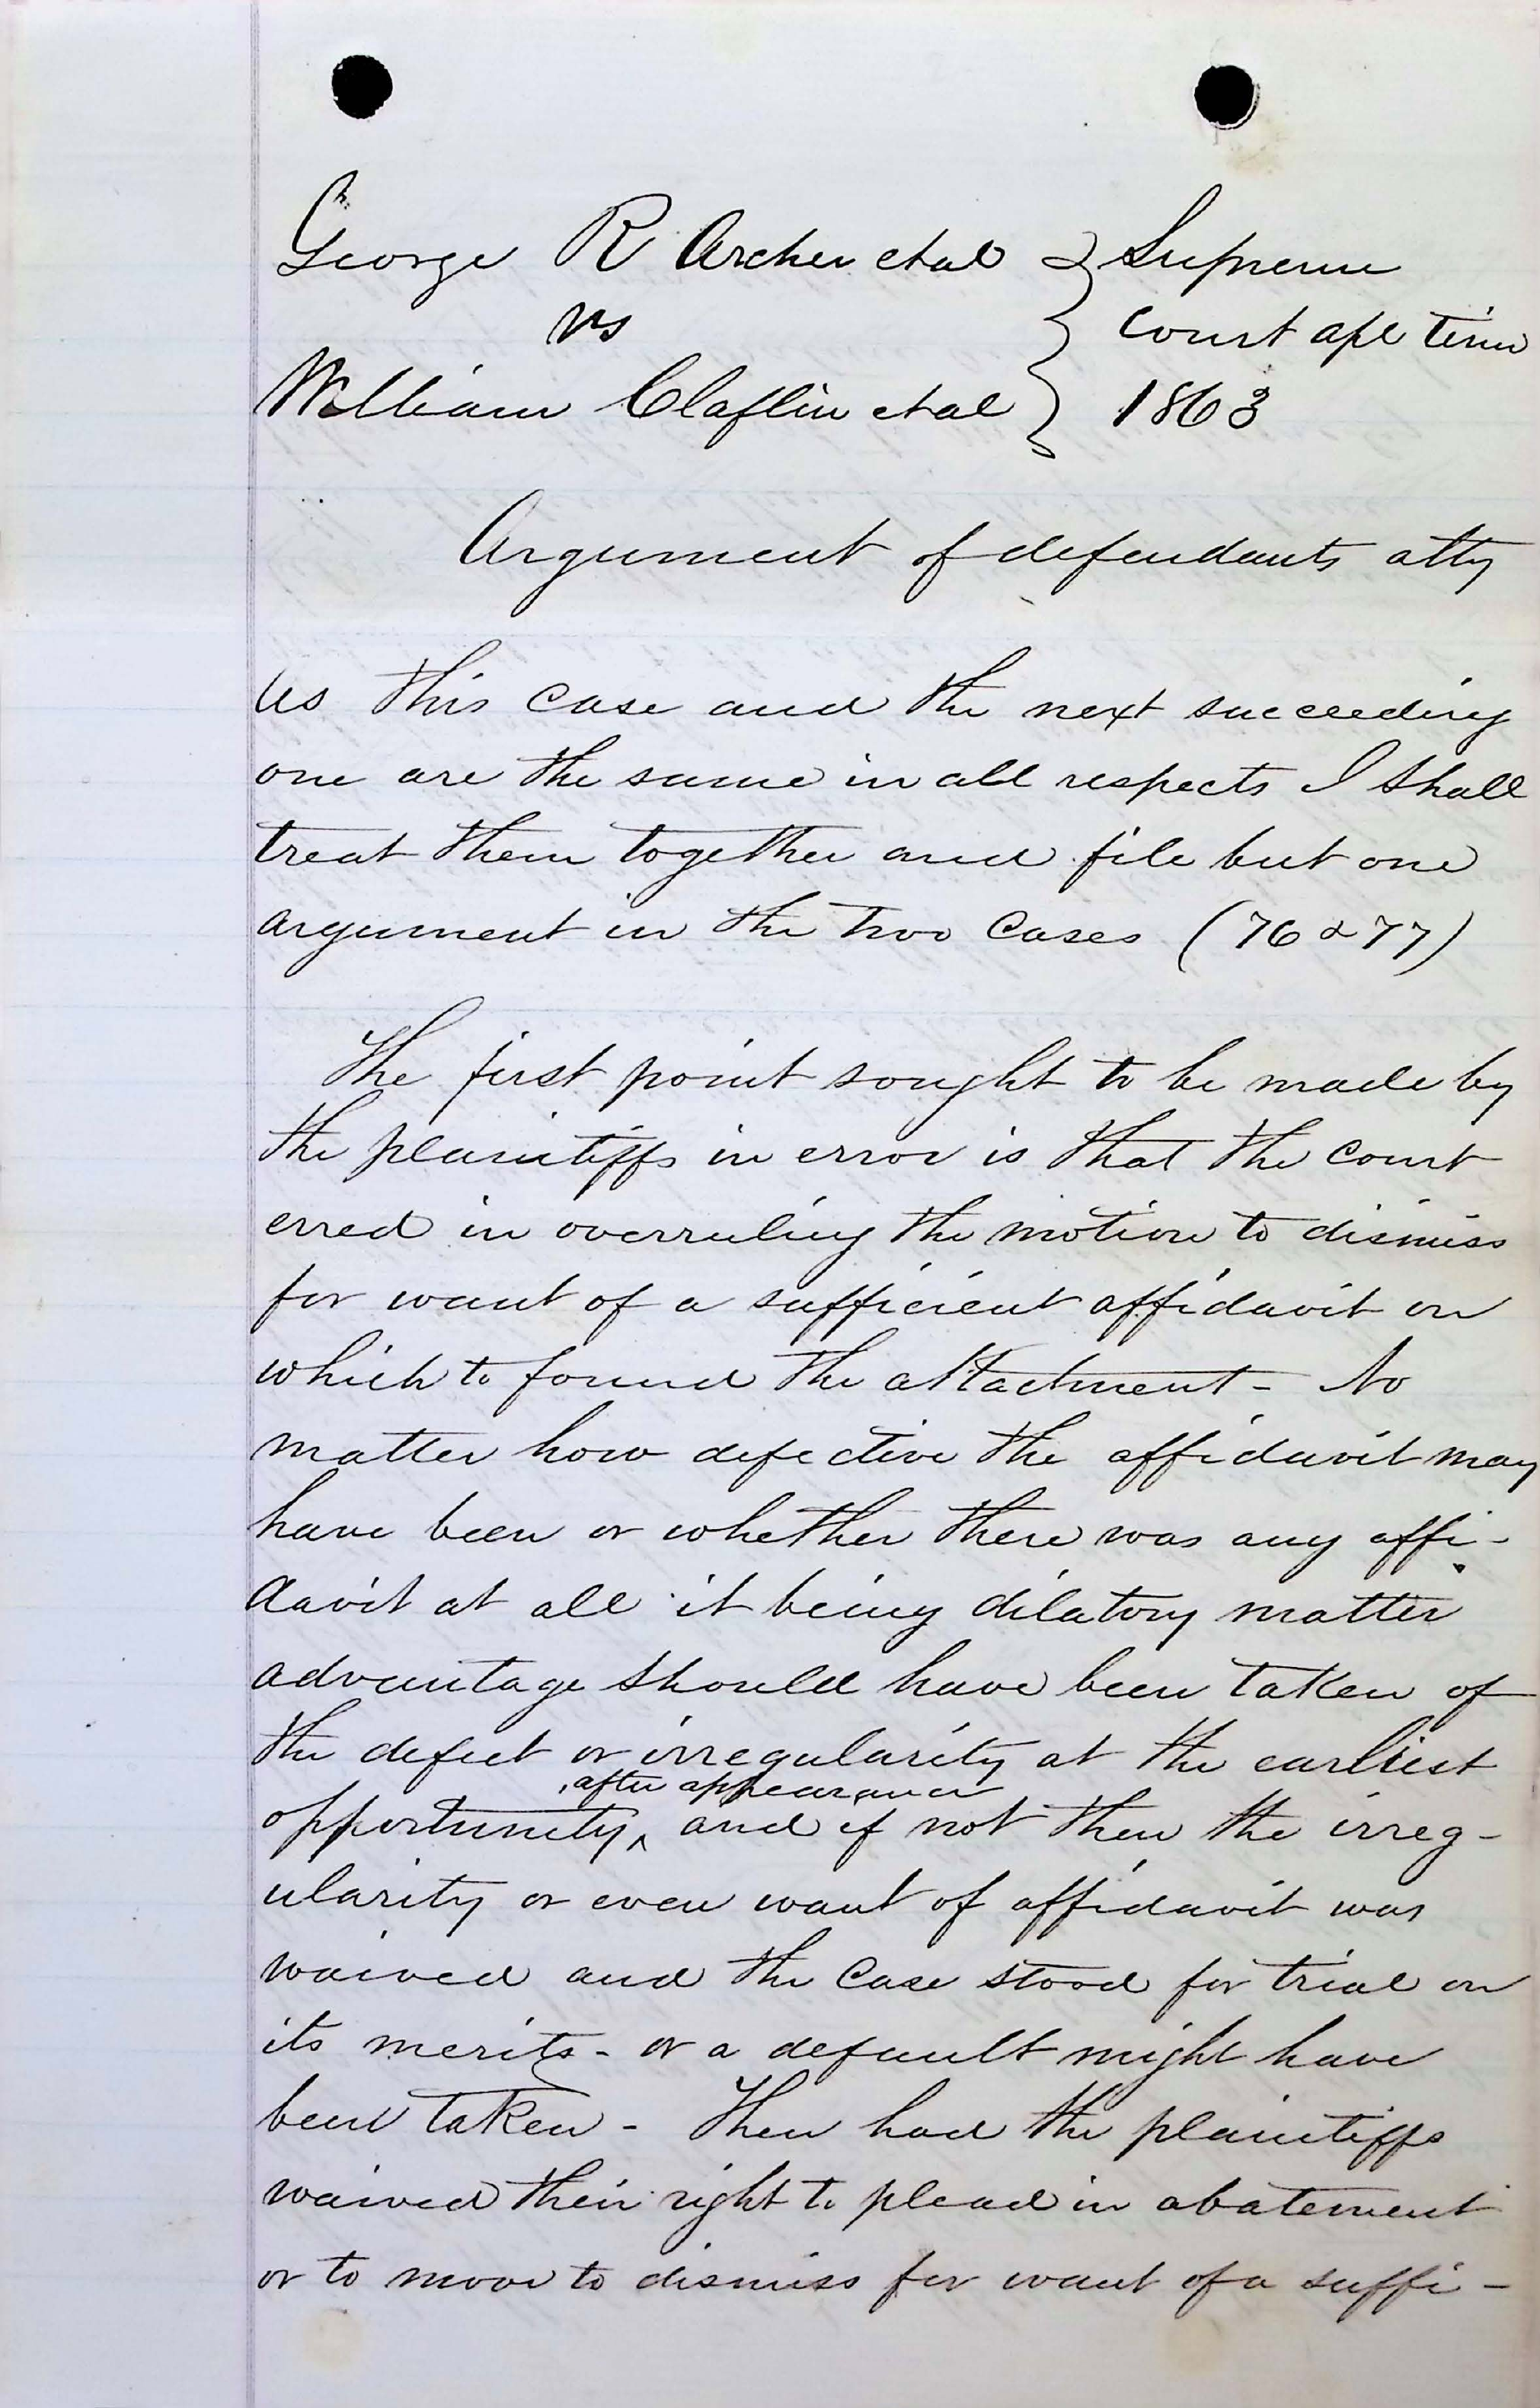 George R Archer et al } Supreme
vs } Court apl term
William Claflin et al } 1863
Argument of defendants atty
As this case and the next succeeding
one are the same in all respects I shall
treat them together and file but one
argument in the two cases (76 & 77)
The first point sought to be made by
the plaintiffs in error is that the court
erred in overruling the motion to dismiss
for want of a sufficient affidavit on
which to found the attachment - No
matter how defective the affidavit may
have been or whether there was any affi-
davit at all it being dilatory matter
advantage should have been taken of
the defect or irregularity at the earliest
, after appearance
opportunity ^ and if not then the irreg-
ularity or even want of affidavit was
waived and the case stood for trial on
its merits - or a default might have
been taken - Then had the plaintiffs
waived their right to plead in abatement
or to move to dismiss for want of a suffi-